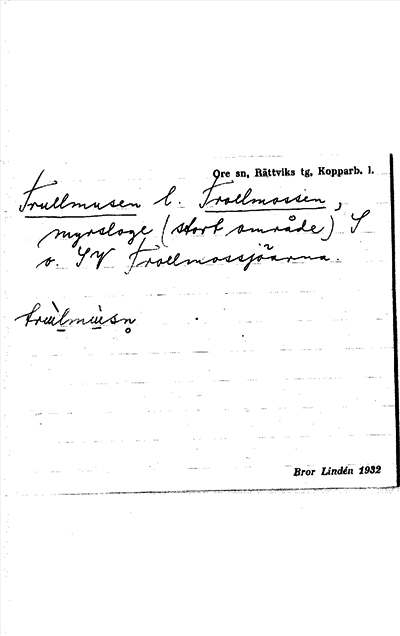 Ore sn, Rättviks tg, Kopparb. l.
Trullmusen l. Trollmossen,
myrsloge (stort område) S
o. SV Trollmossjöarna.
trùlmùsn̥
Bror Lindén 1932